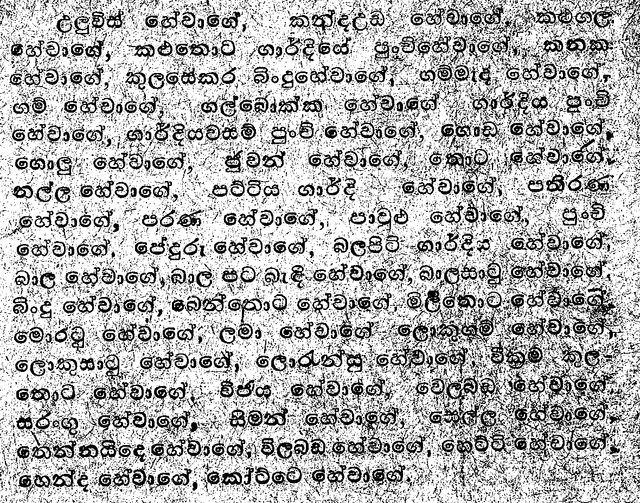 ළුවිස් හේවාගේ, කන්දඋඩ හේවාගේ, කළුගල
හේවාගේ, කළුතොට ගාර්දියේ පුංචිහේවාගේ, කනක
හේවාගේ, කුලසේකර බිංදුහේවාගේ, ගම්මැද හේවාගේ,
ගම් හේවාගේ, ගල්බොක්ක හේවාගේ ගාර්දිය පුංචි
හේවාගේ, ගාර්දියවසම් පුංචි හේවාගේ, ගොඩ හේවාගේ,
ගොලු හේවාගේ, ජුවන් හේවාගේ, තොට හේවාගේ,
නල්ල හේවාගේ, පට්ටිය ගාර්දි හේවාගේ, පතිරණ
හේවාගේ, පරණ හේවාගේ, පාවුළු හේවාගේ, පුංචි
හේවාගේ, පේදුරු හේවාගේ, බලපිටි ගාර්දිය හේවාගේ,
බාල හේවාගේ, බාල පට බැඳි හේවාගේ, බාලසාටු හේවාගේ,
බිංදු හේවාගේ, බෙන්තොට හේවාගේ, මල්තොට හේවාගේ,
මොරටු හේවාගේ, ලමා හේවාගේ ලොකුගම් හේවාගේ,
ලොකුසාටු හේවාගේ, ලොරැන්සු හේවාගේ, වික්‍රම කල
තොට හේවාගේ, විජය හේවාගේ, වෙලබඩ හේවාගේ
සරංගු හේවාගේ, සිමන් හේවාගේ, සෙල්ල හේවාගේ,
තෙන්නයිදෙ හේවාගේ, විලබඩ හේවාගේ, හෙට්ටි හේවාගේ,
හෙන්ද හේවාගේ, කෝට්ටෙ හේවාගේ.